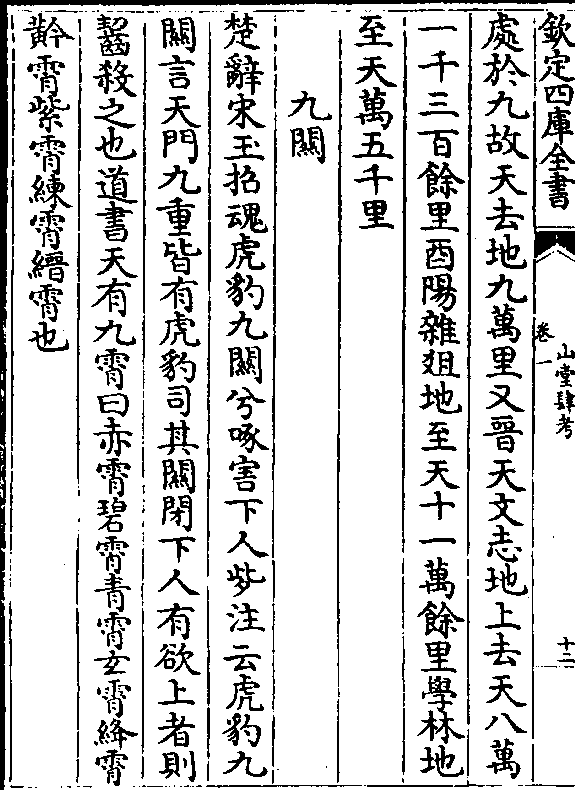 欽定四庫全書
山堂肆考
卷一
十二
處於九故天去地九萬里又晉天文志地上去天八萬
一千三百餘里酉陽雜爼地至天十一萬餘里學林地
至天萬五千里
九關
楚辭宋玉招魂虎豹九關兮啄害下人些注云虎豹九
關言天門九重皆有虎豹司其關閉下人有欲上者則
齧殺之也道書天有九霄曰赤霄碧霄青霄玄霄絳霄
黅霄紫霄練霄縉霄也